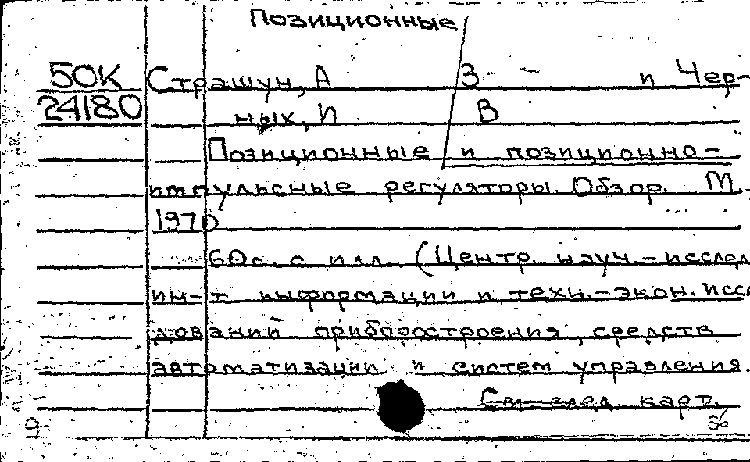 Позиционные
50К Страшун, А З и Чер-
24180 ных, И В
Позиционные и позиционно-
импульсные регуляторы. Обзор. М.
1970
60с. с илл. (Центр. науч.-исслед.
ин-т информации и техн.-экон. иссле
дований приборостроения, средств
автоматизации и систем управления.
См. след. карт.
9 56